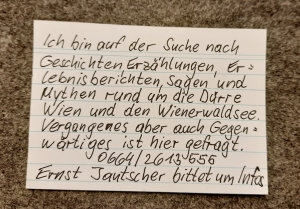 Ich bin auf der Suche nach
Geschichten Erzählungen, Er-
lebnisberichten, Sagen und
Mythen rund um die Dürre
Wien und den Wienerwaldsee.
Vergangenes aber auch Gegen-
wärtiges ist hier gefragt.
0664/2613555
Ernst Jautscher bittet um Infos